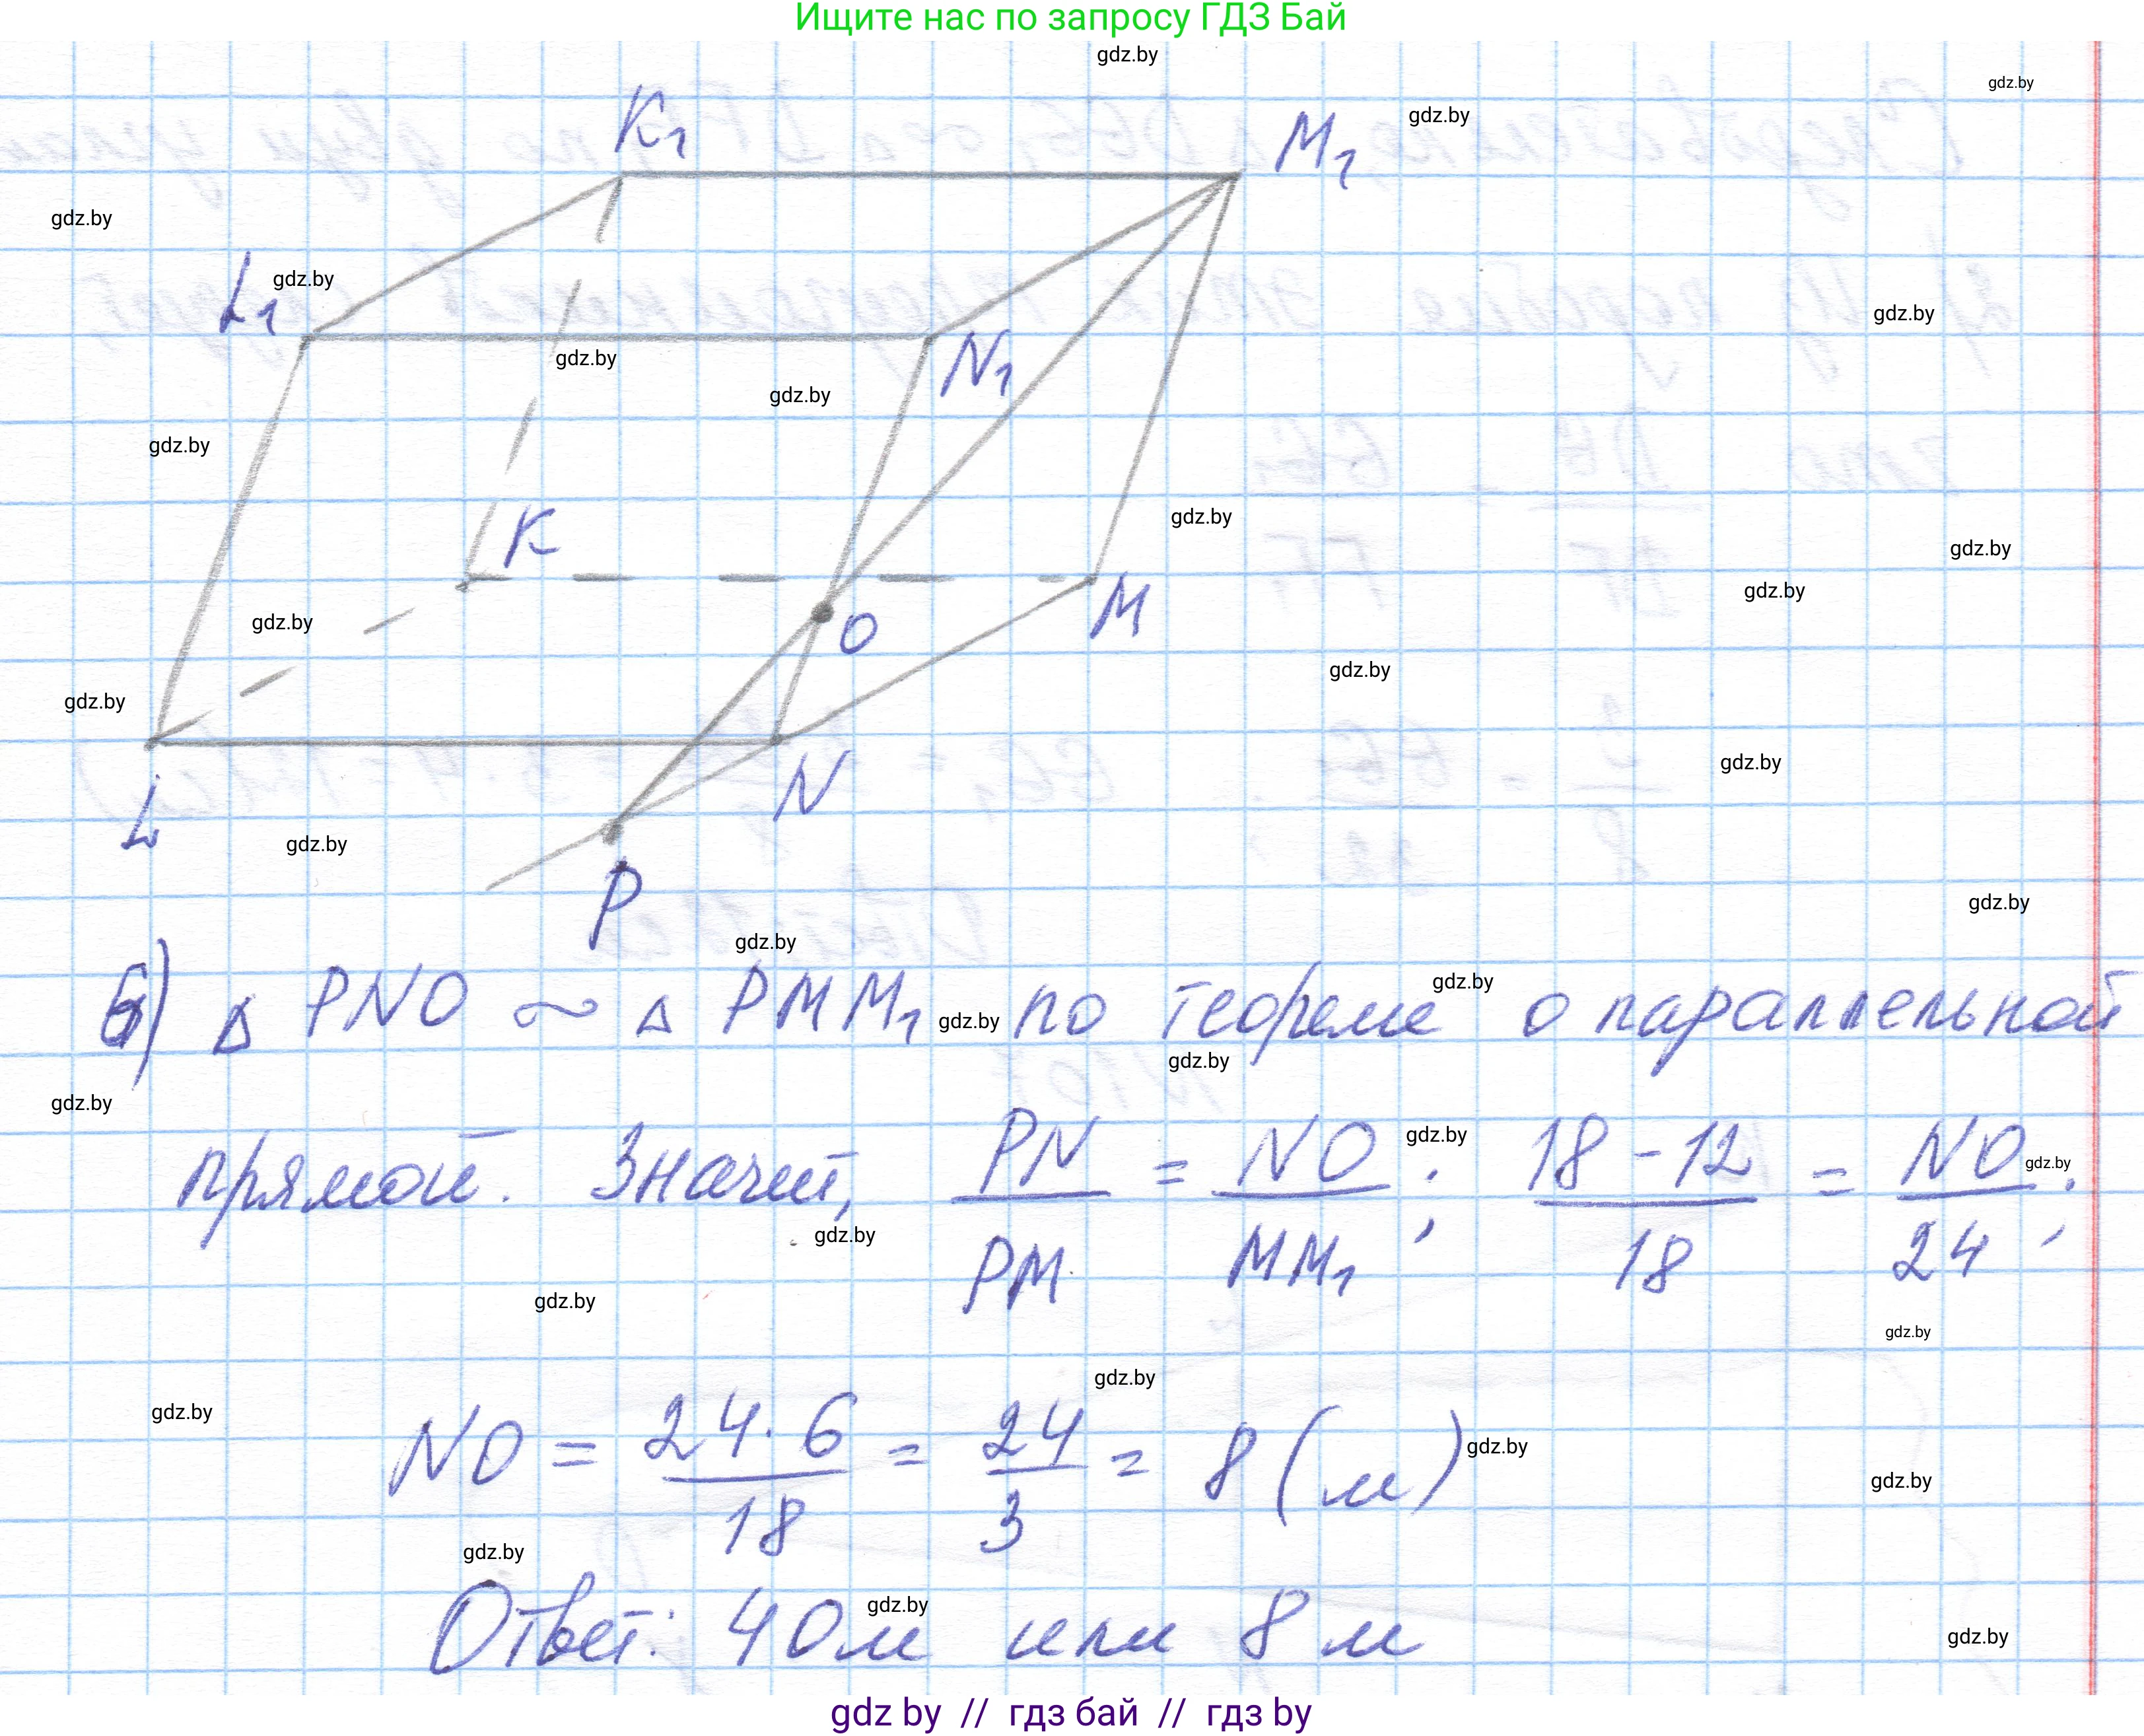 Ищите нас по запросу ГДЗ Бай
K₁
M₁
L₁
N₁
K
M
O
L
N
P
б) Δ PNO ∾ Δ PMM₁ по теореме о параллельной
прямой. Значит, PN/PM = NO/MM₁; (18-12)/18 = NO/24;
NO = (24·6)/18 = 24/3 = 8 (м)
Ответ: 40м или 8 м
gdz by // гдз бай // гдз by